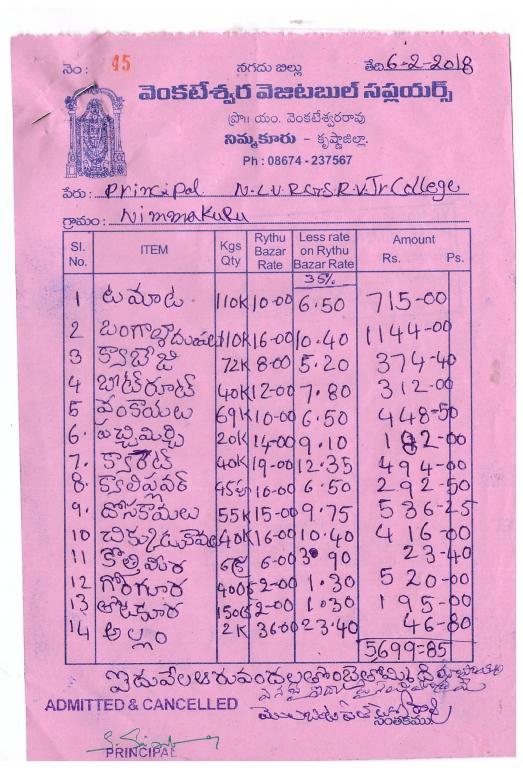 నెం: 45 నగదు బిల్లు తేది 6-2-2018
వెంకటేశ్వర వెజిటబుల్ సప్లయర్స్
ప్రొ॥ యం. వెంకటేశ్వరరావు
నిమ్మకూరు - కృష్ణాజిల్లా.
Ph : 08674 - 237567
పేరు: Principal N.L.V.R.G.S.R.V.Jr College
గ్రామం: Nimmakuru
Sl. No. ITEM Kgs Qty Rythu Bazar Rate Less rate on Rythu Bazar Rate Amount Rs. Ps.
35%
1 టమాట 110K 10-00 6.50 715-00
2 బంగాళాదుంపలు 110K 16-00 10.40 1144-00
3 క్యాబేజి 72K 8-00 5.20 374-40
4 బీట్‌రూట్ 40K 12-00 7.80 312-00
5 వంకాయలు 69K 10-00 6.50 448-50
6. పచ్చిమిర్చి 20K 14-00 9.10 182-00
7. క్యారెట్ 40K 19-00 12.35 494-00
8. క్యాలిఫ్లవర్ 45 10-00 6.50 292-50
9. దోసకాయలు 55K 15-00 9.75 536-25
10 చిక్కుడుకాయలు 40K 16-00 10.40 416-00
11 కొత్తిమీర 6K 6-00 3.90 23-40
12 గోంగూర 400 2-00 1.30 520-00
13 తోటకూర 150K 2-00 1.30 195-00
14 అల్లం 2K 36-00 23.40 46-80
5699-85
ఐదువేల ఆరువందల తొంబైతొమ్మిది రూపాయలు
ADMITTED & CANCELLED
సంతకము
PRINCIPAL